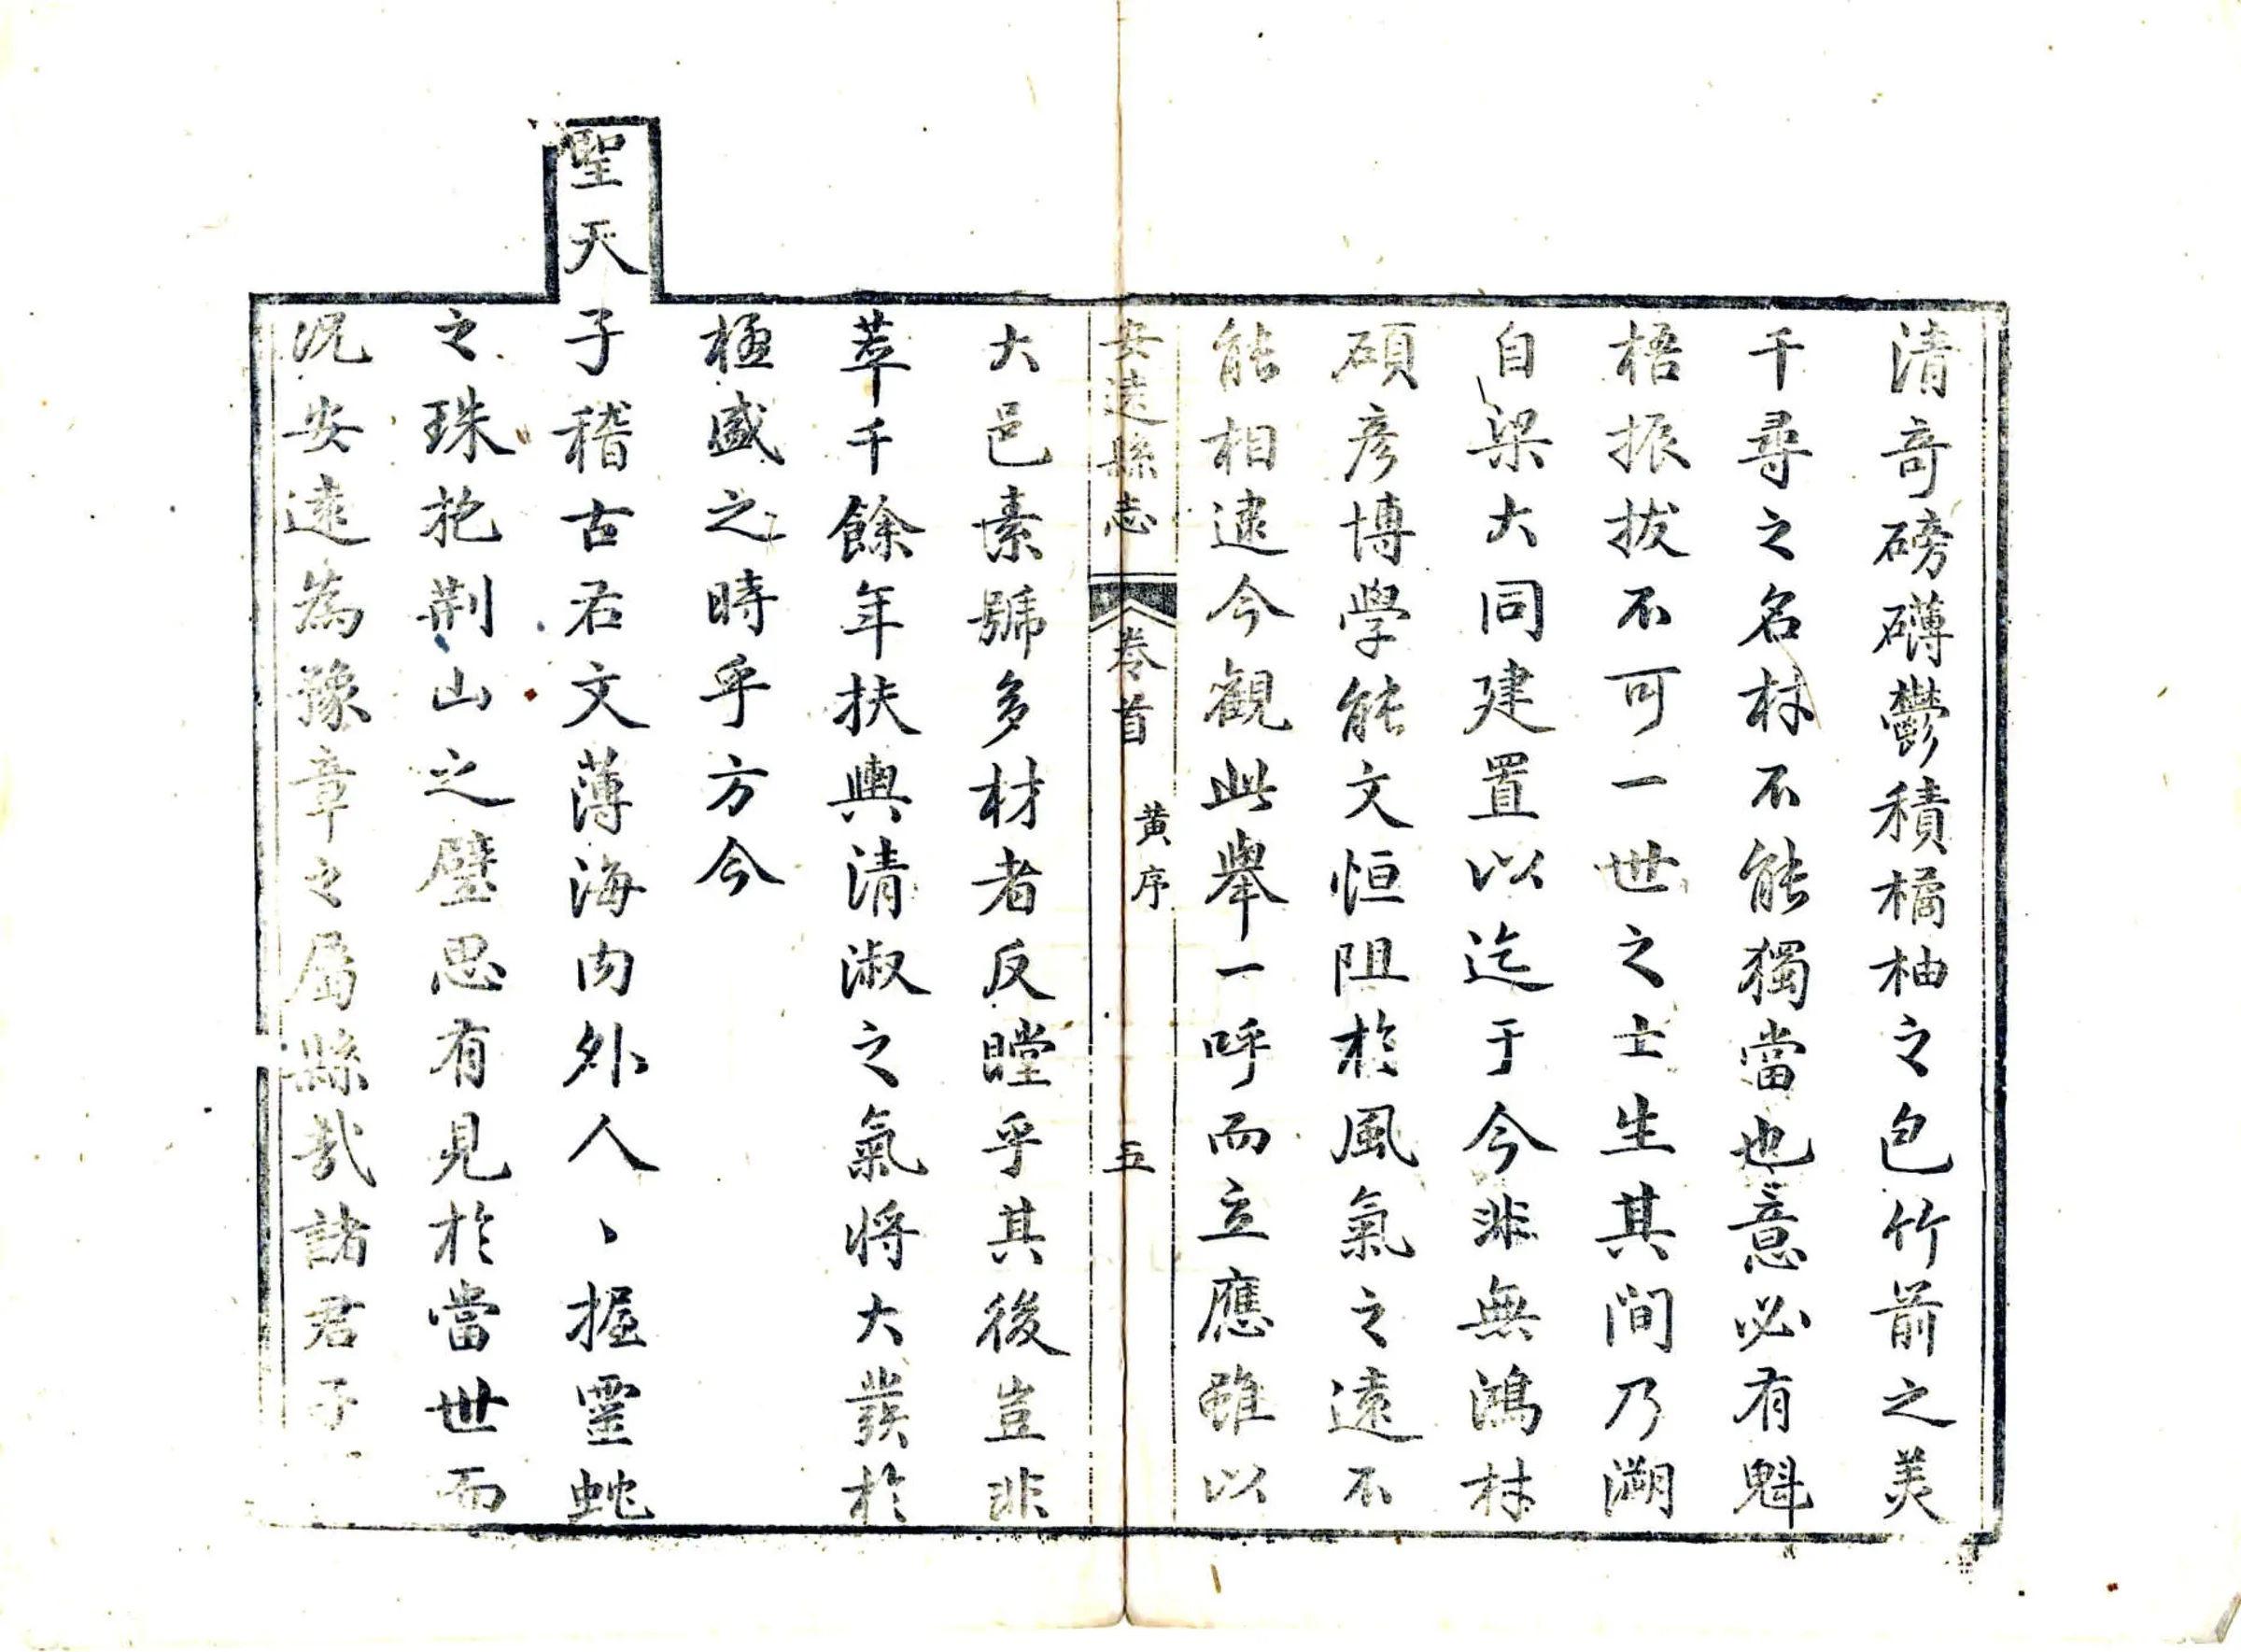 清奇磅礴鬱積橘柚之包竹箭之美
千尋之名材不能獨當也意必有魁
梧振拔不可一世之士生其間乃溯
自梁大同建置以迄于今非無鴻材
碩彥博學能文恒阻於風氣之遠不
能相逮今觀此舉一呼而立應雖以
安遠縣志 卷首 黃序 五
大邑素號多材者反瞠乎其後豈非
萃千餘年扶輿清淑之氣將大發於
極盛之時乎方今
聖天子稽古右文薄海內外人、握靈蛇
之珠抱荆山之璧思有見於當世而
況安遠為豫章之屬縣哉諸君子